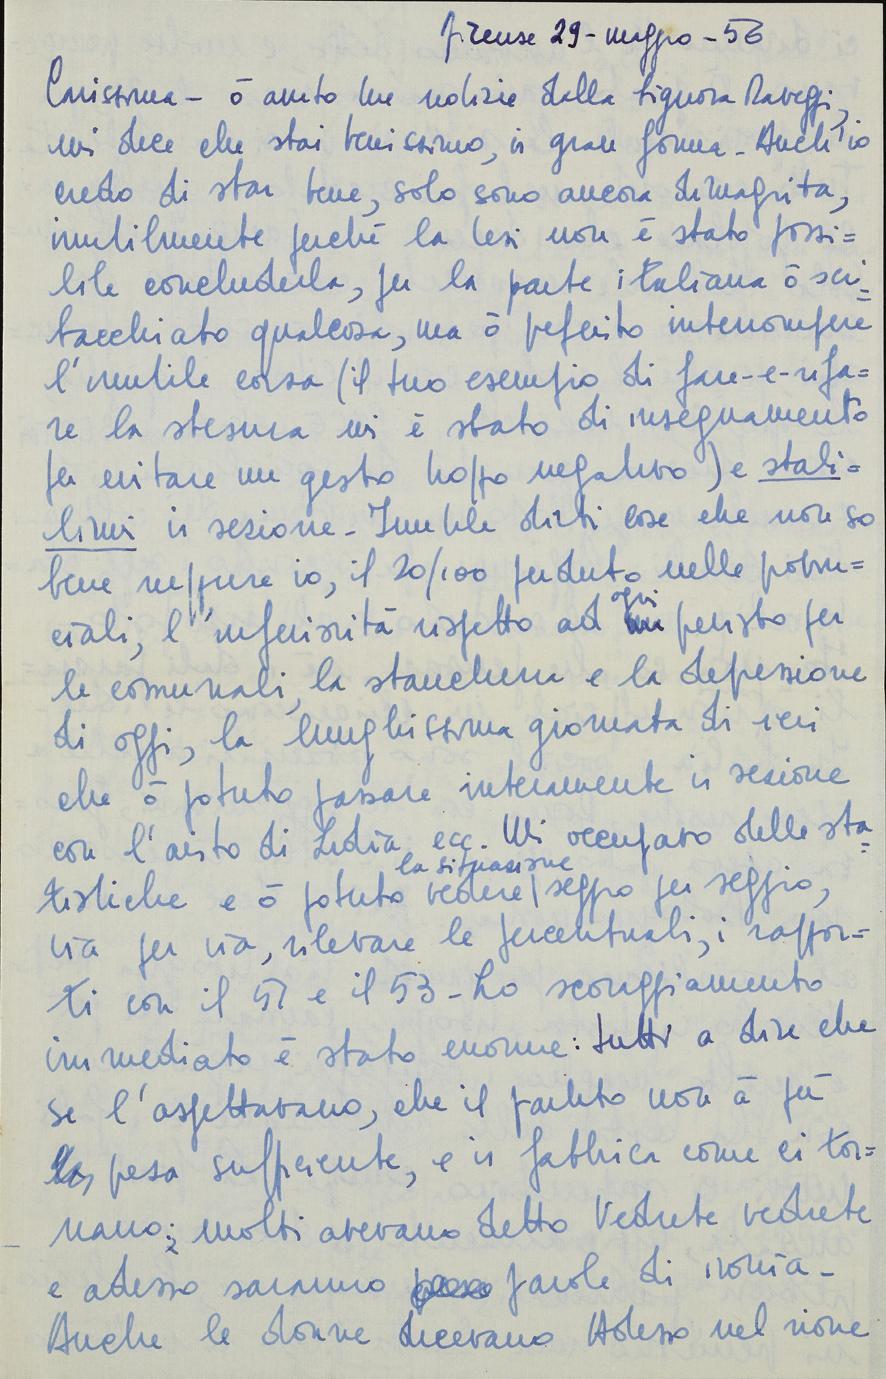 Firenze 29 - maggio - 56
Carissima - ò avuto tue notizie dalla signora Raveggi,
mi dice che stai benissimo, in gran forma - Anch'io
credo di star bene, solo sono ancora dimagrita,
inutilmente perché la tesi non è stato possi=
bile concluderla, per la parte italiana ò sci=
tacchiato qualcosa, ma ò preferito interrompere
l'inutile corsa (il tuo esempio di fare-e-rifa=
re la stesura mi è stato di insegnamento
per evitare un gesto troppo negativo) e stabi=
lirmi in sezione - Inutile dirti cose che non so
bene neppure io, il 20/100 perduto nelle provin=
ciali, l'inferiorità rispetto ad ogni previsto per
le comunali, la stanchezza e la depressione
di oggi, la lunghissima giornata di ieri
che ò potuto passare interamente in sezione
con l'aiuto di Lidia, ecc. Mi occupavo delle sta=
tistiche e ò potuto vedere la situazione seggio per seggio,
via per via, rilevare le percentuali, i rappor=
ti con il 51 e il 53 - Lo scoraggiamento
immediato è stato enorme: tutti a dire che
se l'aspettavano, che il partito non à più
presa sufficiente, e in fabbrica come ci tor=
nano; molti avevano detto Vedrete vedrete
e adesso saranno parole di ironia -
Anche le donne dicevano Adesso nel rione